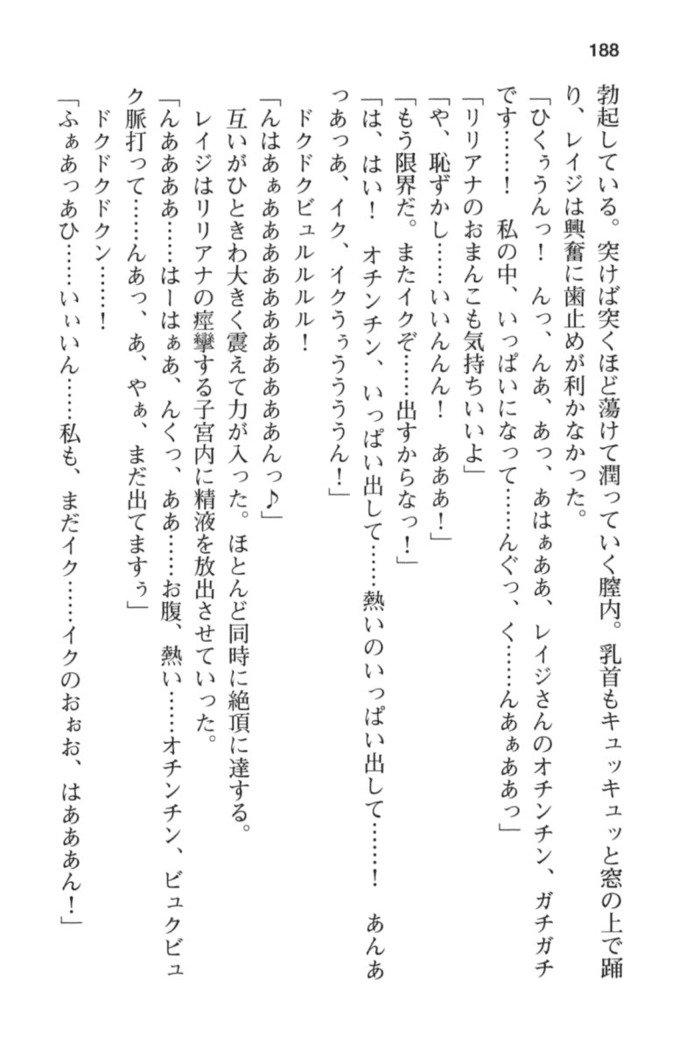 188
勃起している。突けば突くほど蕩けて潤っていく膣内。乳首もキュッキュッと窓の上で踊
り、レイジは興奮に歯止めが利かなかった。
「ひくぅうんっ！　んっ、んあ、あっ、あはぁああ、レイジさんのオチンチン、ガチガチ
です……！　私の中、いっぱいになって……んぐっ、く……んあぁああっ」
「リリアナのおまんこも気持ちいいよ」
「や、恥ずかし……いいんんん！　あああ！」
「もう限界だ。またイクぞ……出すからなっ！」
「は、はい！　オチンチン、いっぱい出して……熱いのいっぱい出して……！　あんあ
っあっあ、イク、イクうぅうううん！」
　ドクドクビュルルルル！
「んはあぁああああああああああああんっ♪」
　互いがひときわ大きく震えて力が入った。ほとんど同時に絶頂に達する。
　レイジはリリアナの痙攣する子宮内に精液を放出させていった。
「んああああ……はーはぁあ、んくっ、ああ……お腹、熱い……オチンチン、ビュクビュ
ク脈打って……んあっ、あ、やぁ、まだ出てますぅ」
　ドクドクドクン……！
「ふぁあっあひ……いぃいん……私も、まだイク……イクのおぉお、はあああん！」